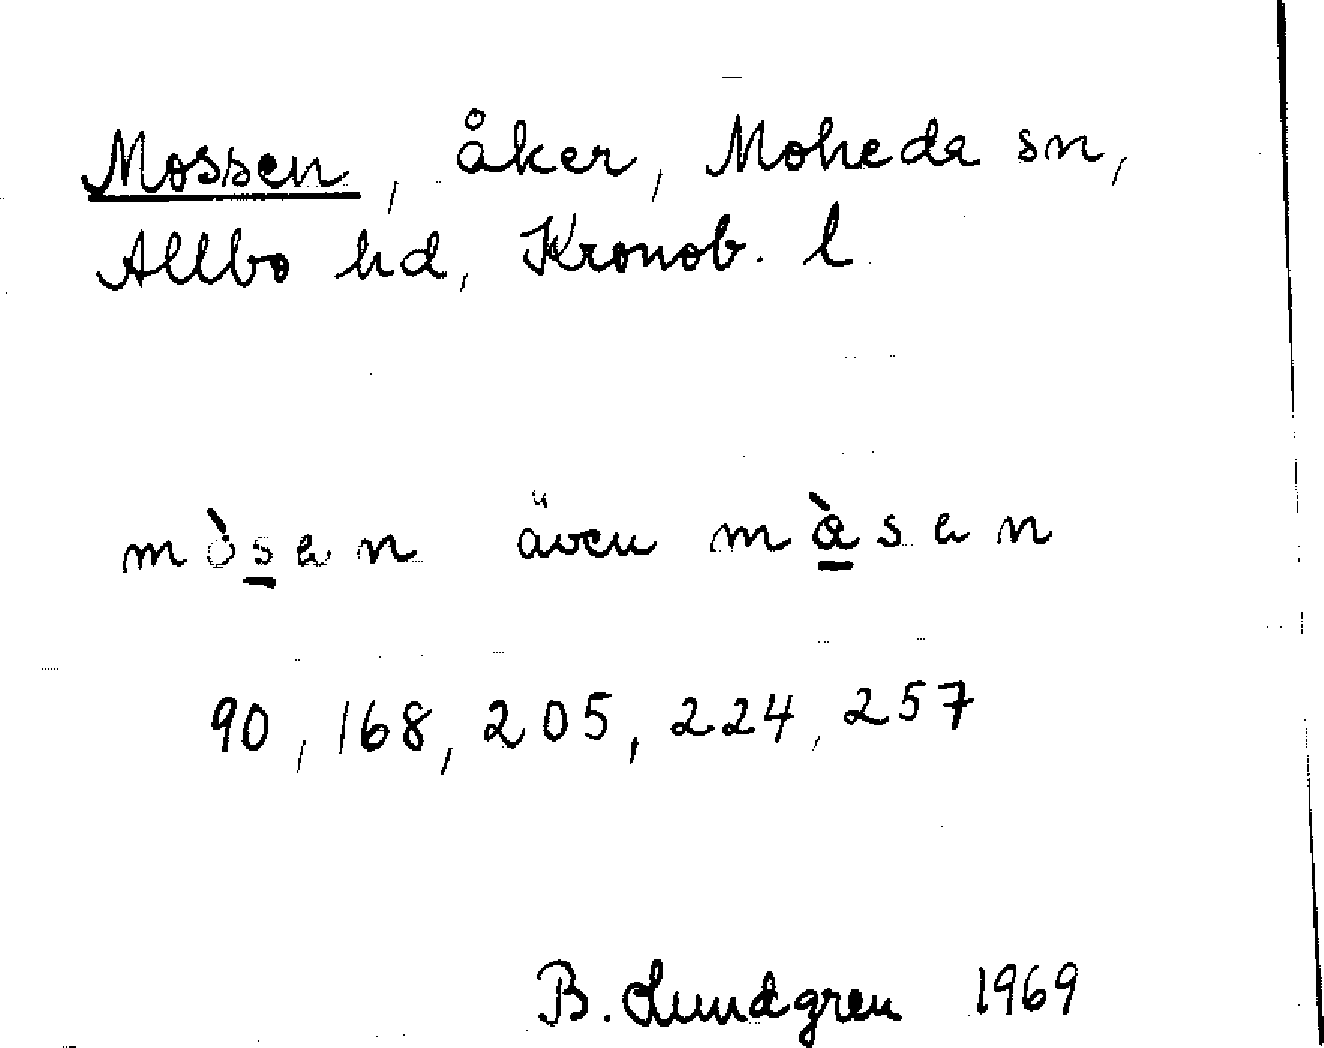 Mossen, åker, Moheda sn,
Allbo hd, Kronob. l.
mòs̲en även mæ̲̀sen
90, 168, 205, 224, 257
B. Lundgren 1969